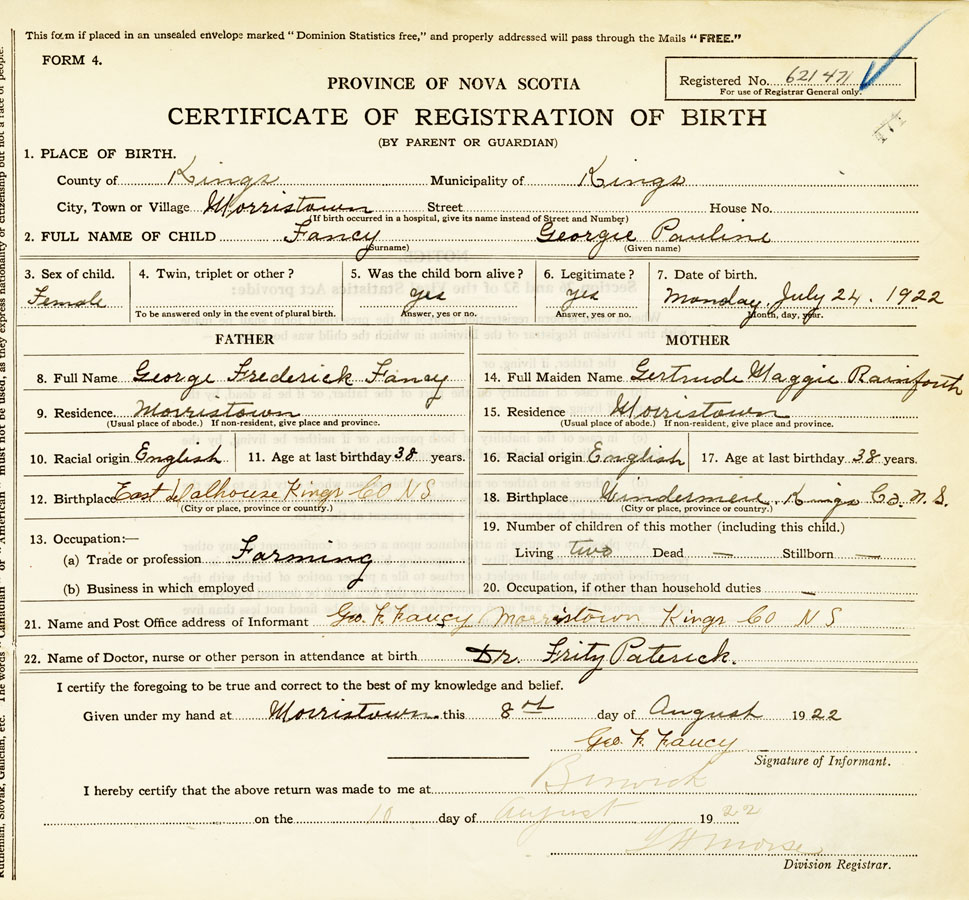 This form if placed in an unsealed envelope marked "Dominion Statistics free," and properly addressed will pass through the Mails "FREE."
FORM 4.
PROVINCE OF NOVA SCOTIA
Registered No. 621471
For use of Registrar General only.
CERTIFICATE OF REGISTRATION OF BIRTH
(BY PARENT OR GUARDIAN)
1. PLACE OF BIRTH.
County of Kings Municipality of Kings
City, Town or Village Morristown Street House No.
(If birth occurred in a hospital, give its name instead of Street and Number)
2. FULL NAME OF CHILD Fancy Georgie Pauline
(Surname) (Given name)
3. Sex of child. 4. Twin, triplet or other? 5. Was the child born alive? 6. Legitimate? 7. Date of birth.
Female yes yes Monday, July 24. 1922
To be answered only in the event of plural birth. Answer, yes or no. Answer, yes or no. Month, day, year.
FATHER MOTHER
8. Full Name George Frederick Fancy 14. Full Maiden Name Gertrude Maggie Rainforth
9. Residence Morristown 15. Residence Morristown
(Usual place of abode.) If non-resident, give place and province. (Usual place of abode.) If non-resident, give place and province.
10. Racial origin English 11. Age at last birthday 38 years. 16. Racial origin English 17. Age at last birthday 38 years.
12. Birthplace East Dalhouse Kings CO NS 18. Birthplace Windermere Kings Co. N. S.
(City or place, province or country.) (City or place, province or country.)
13. Occupation:— 19. Number of children of this mother (including this child.)
(a) Trade or profession Farming Living two Dead — Stillborn —
(b) Business in which employed 20. Occupation, if other than household duties —
21. Name and Post Office address of Informant Geo. F. Fancy Morristown Kings CO NS
22. Name of Doctor, nurse or other person in attendance at birth Dr. Frity Paterick.
I certify the foregoing to be true and correct to the best of my knowledge and belief.
Given under my hand at Morristown this 8 day of August 1922
Geo. F. Fancy
Signature of Informant.
I hereby certify that the above return was made to me at Berwick
on the 10 day of August 1922
Morse
Division Registrar.